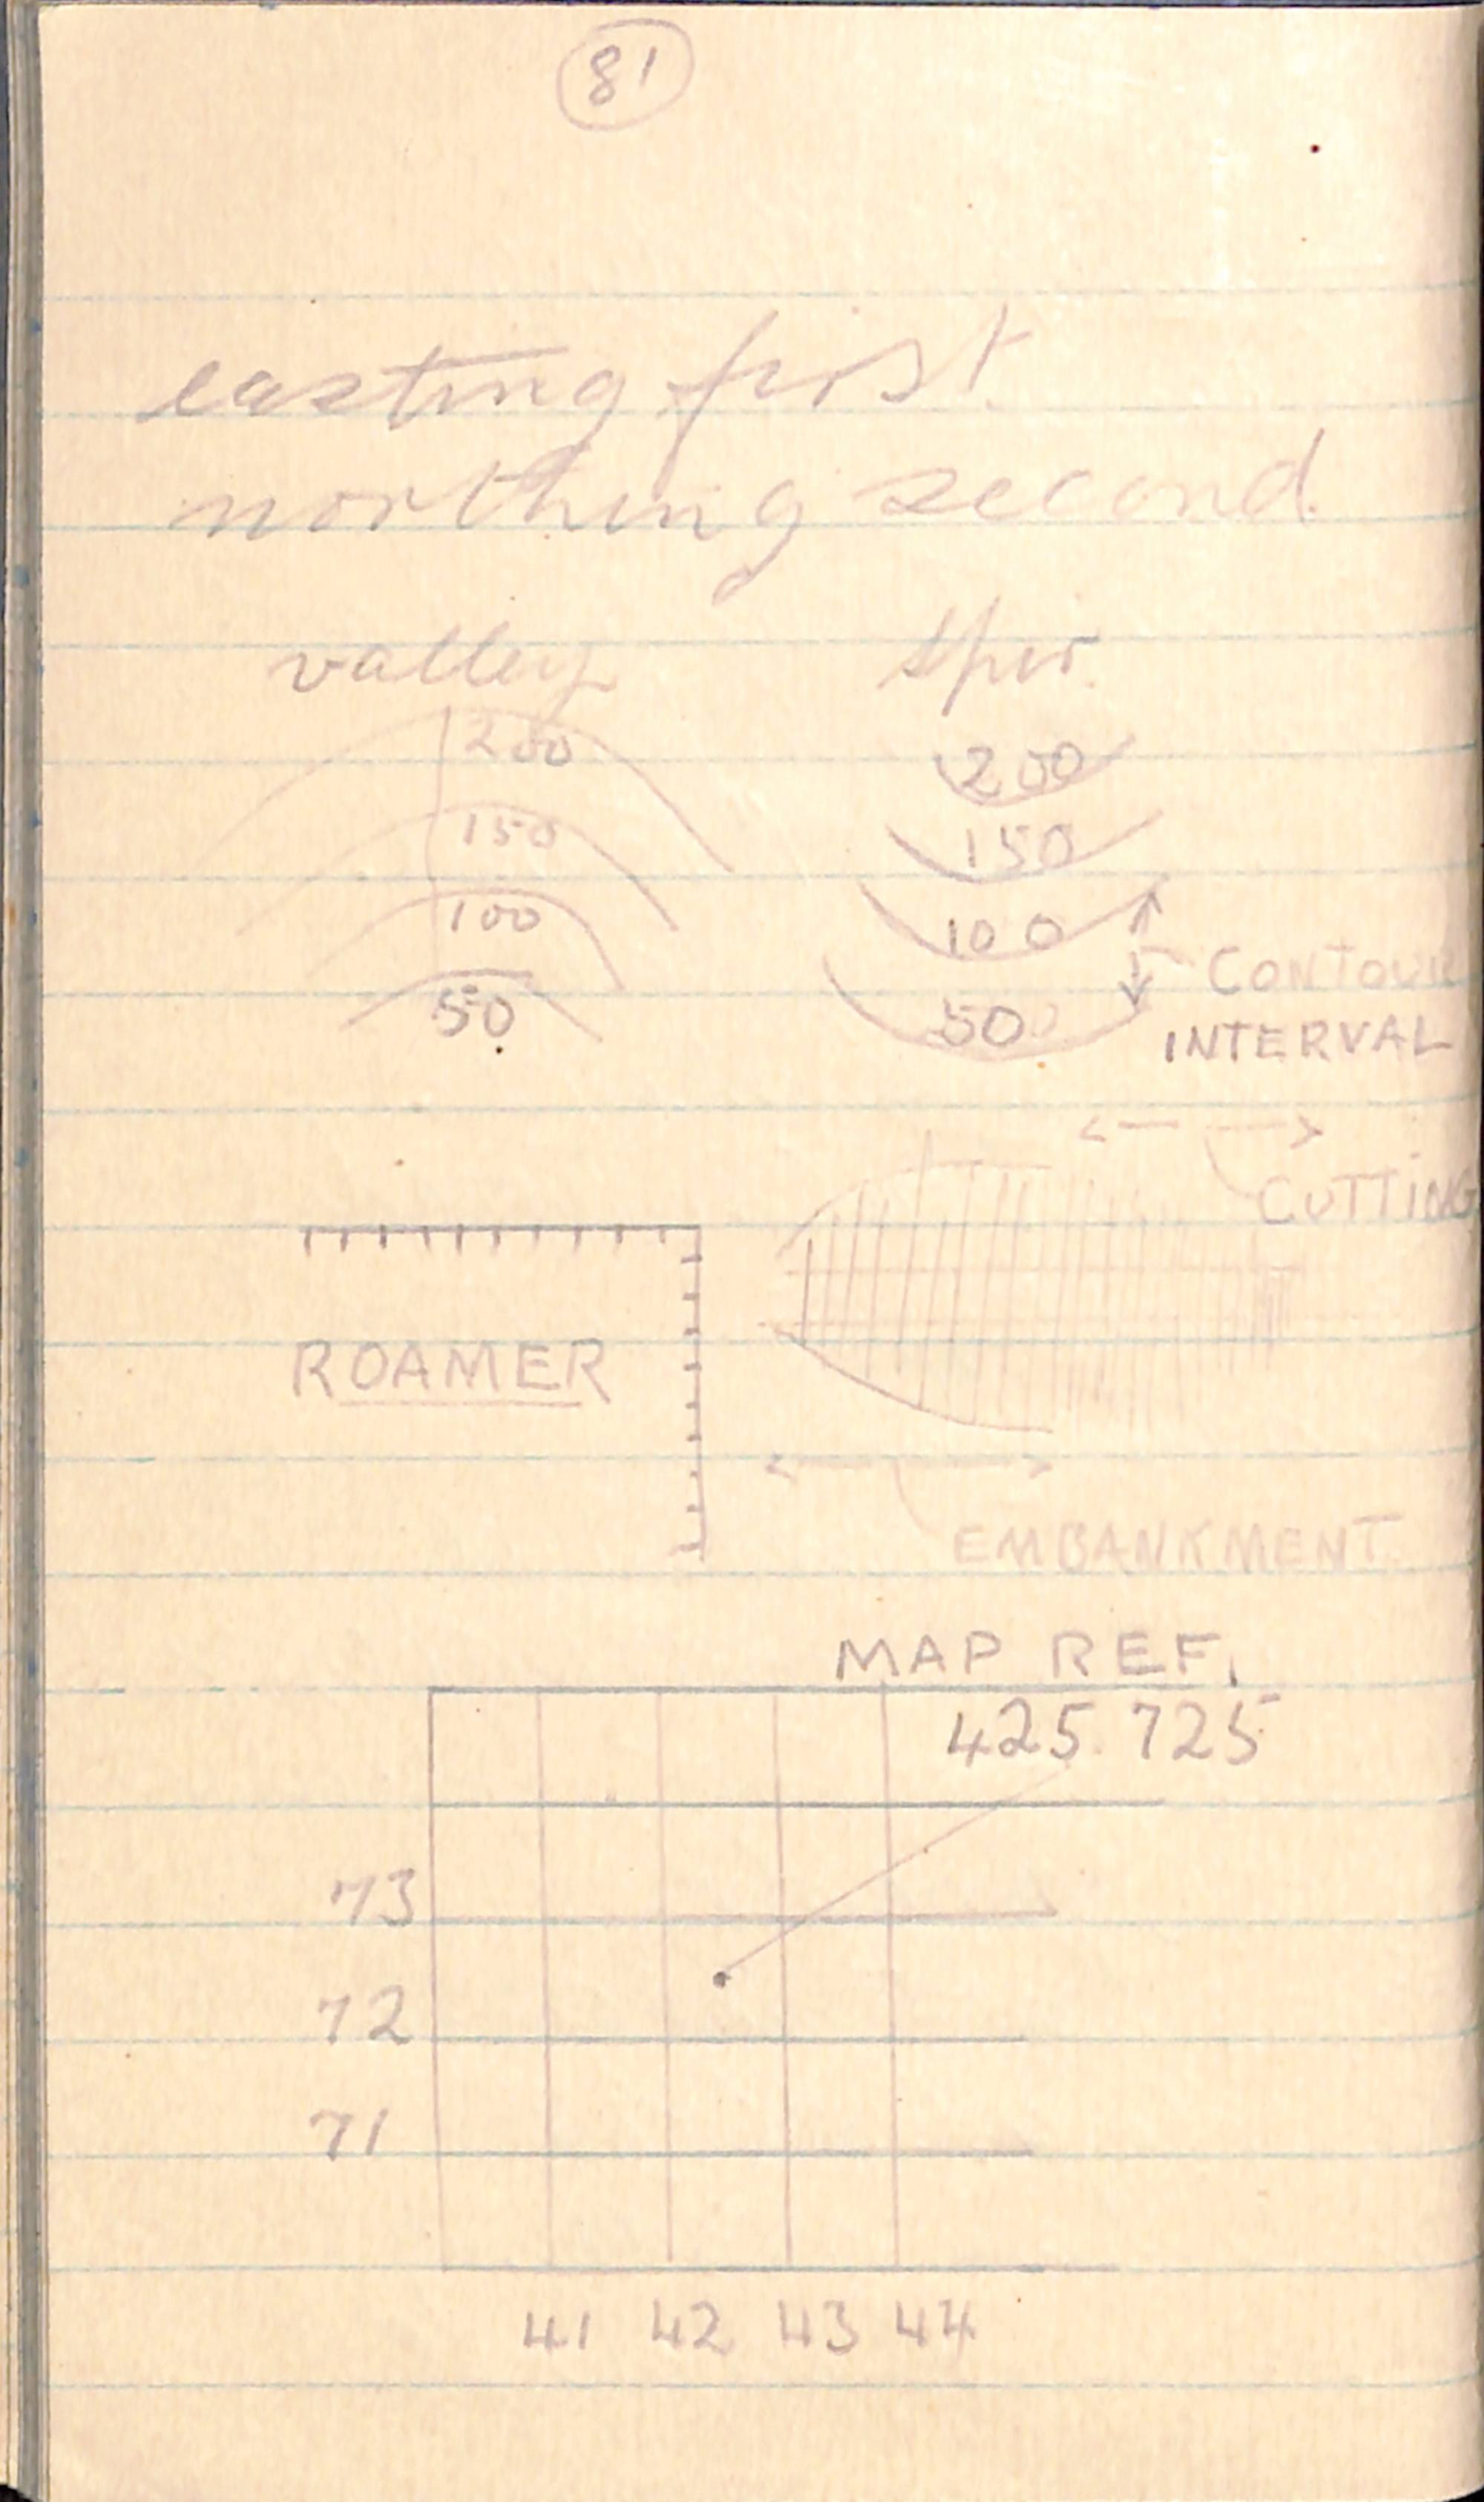 81
easting first
northing second
valley
200
150
100
50
spur
200
150
100
50
CONTOUR
INTERVAL
CUTTING
ROAMER
EMBANKMENT
MAP REF.
425 725
73
72
71
41 42 43 44